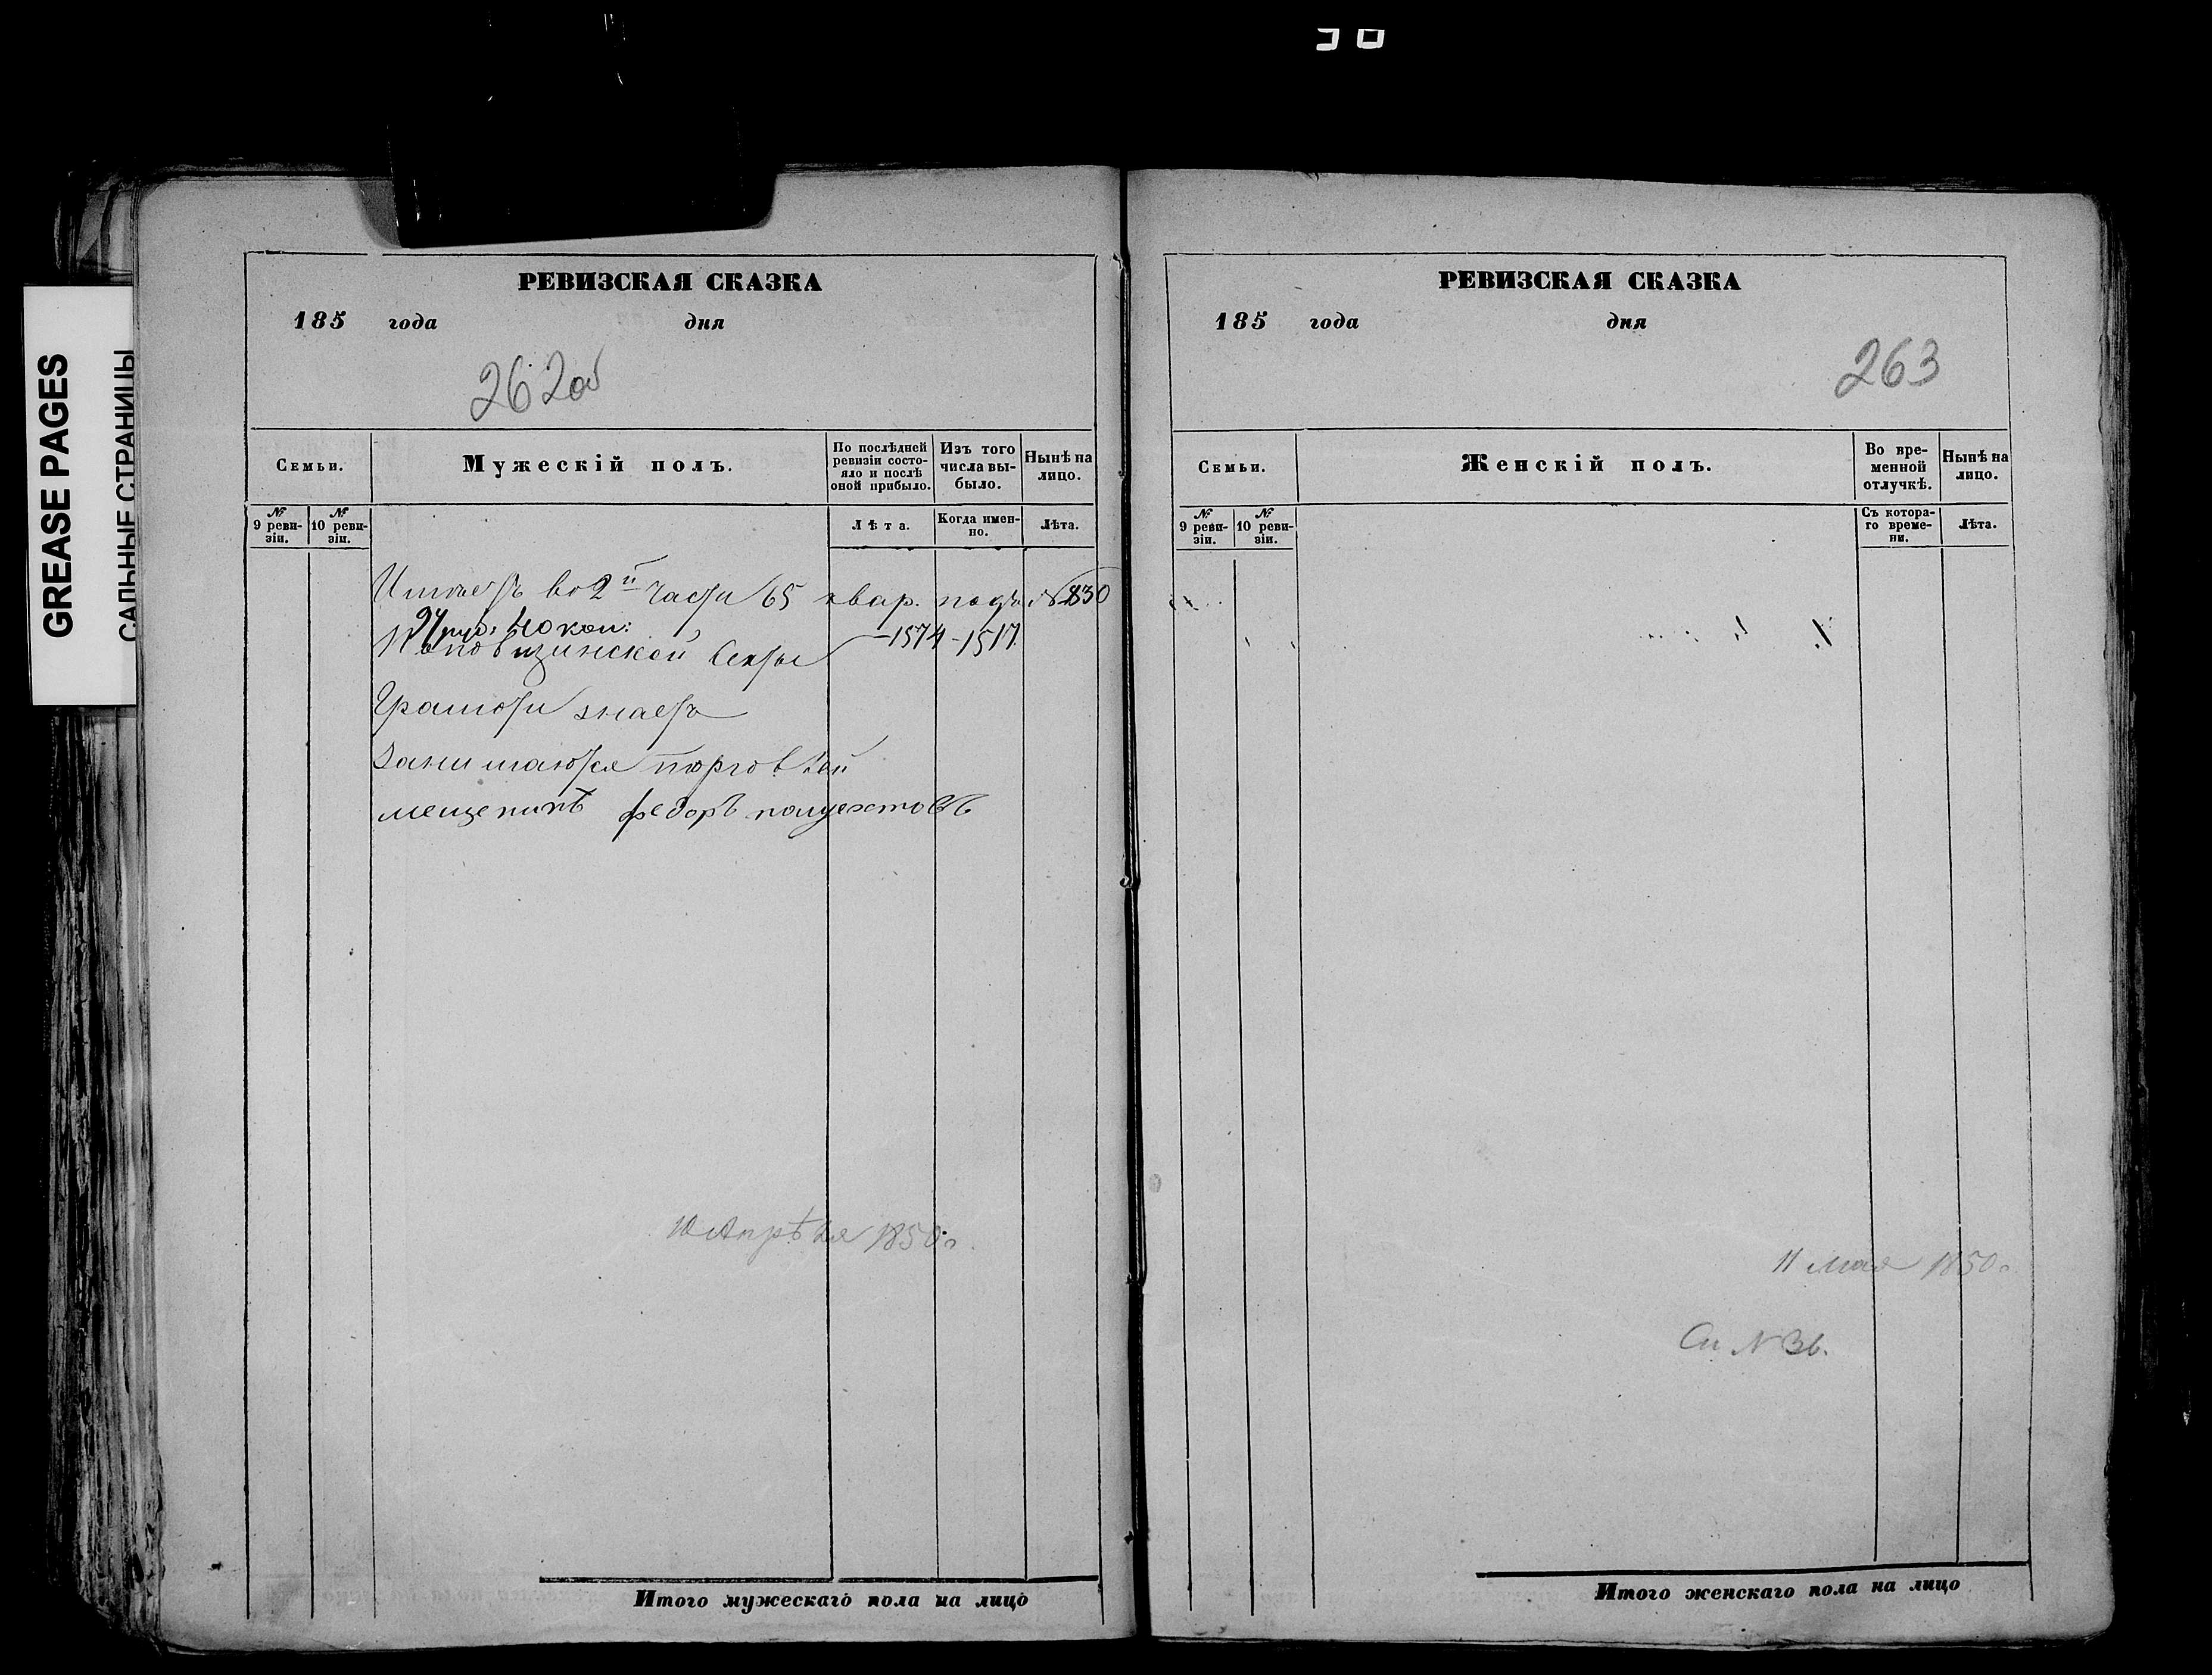 GREASE PAGES
САЛЬНЫЕ СТРАНИЦЫ
РЕВИЗСКАЯ СКАЗКА
185 года дня
262об
Семьи.
Мужескій полъ.
По послѣдней ревизіи состояло и послѣ оной прибыло.
Изъ того числа выбыло.
Нынѣ на лицо.
№ 9 ревизіи.
№ 10 ревизіи.
Лѣта.
Когда именно.
Лѣта.
во 2й части 65 квар. подъ № 830
24 руб: 40 коп:
секты – 1574 – 1517
Грамоти знаетъ
Занимаются торговлей
мещенинъ федоръ полуехтовъ
10 Апрѣля 1850 г.
Итого мужескаго пола на лицо
РЕВИЗСКАЯ СКАЗКА
185 года дня
263
Семьи.
Женскій полъ.
Во временной отлучкѣ.
Нынѣ на лицо.
№ 9 ревизіи.
№ 10 ревизіи.
Съ котораго времени.
Лѣта.
11 Мая 1850 г.
См № 36.
Итого женскаго пола на лицо